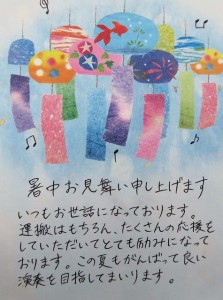 暑中お見舞い申し上げます
いつもお世話になっております。
運搬はもちろん、たくさんの応援を
していただいてとても励みになって
おります。この夏もがんばって良い
演奏を目指してまいります。